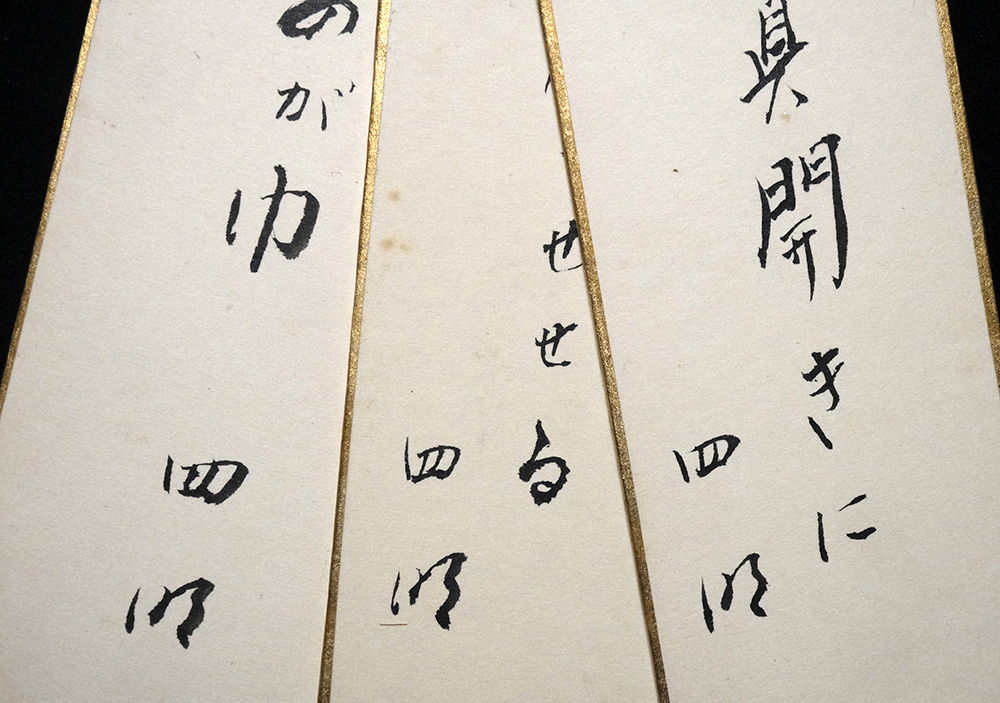 具開きに
四明
せせる
四明
のが巾
四明